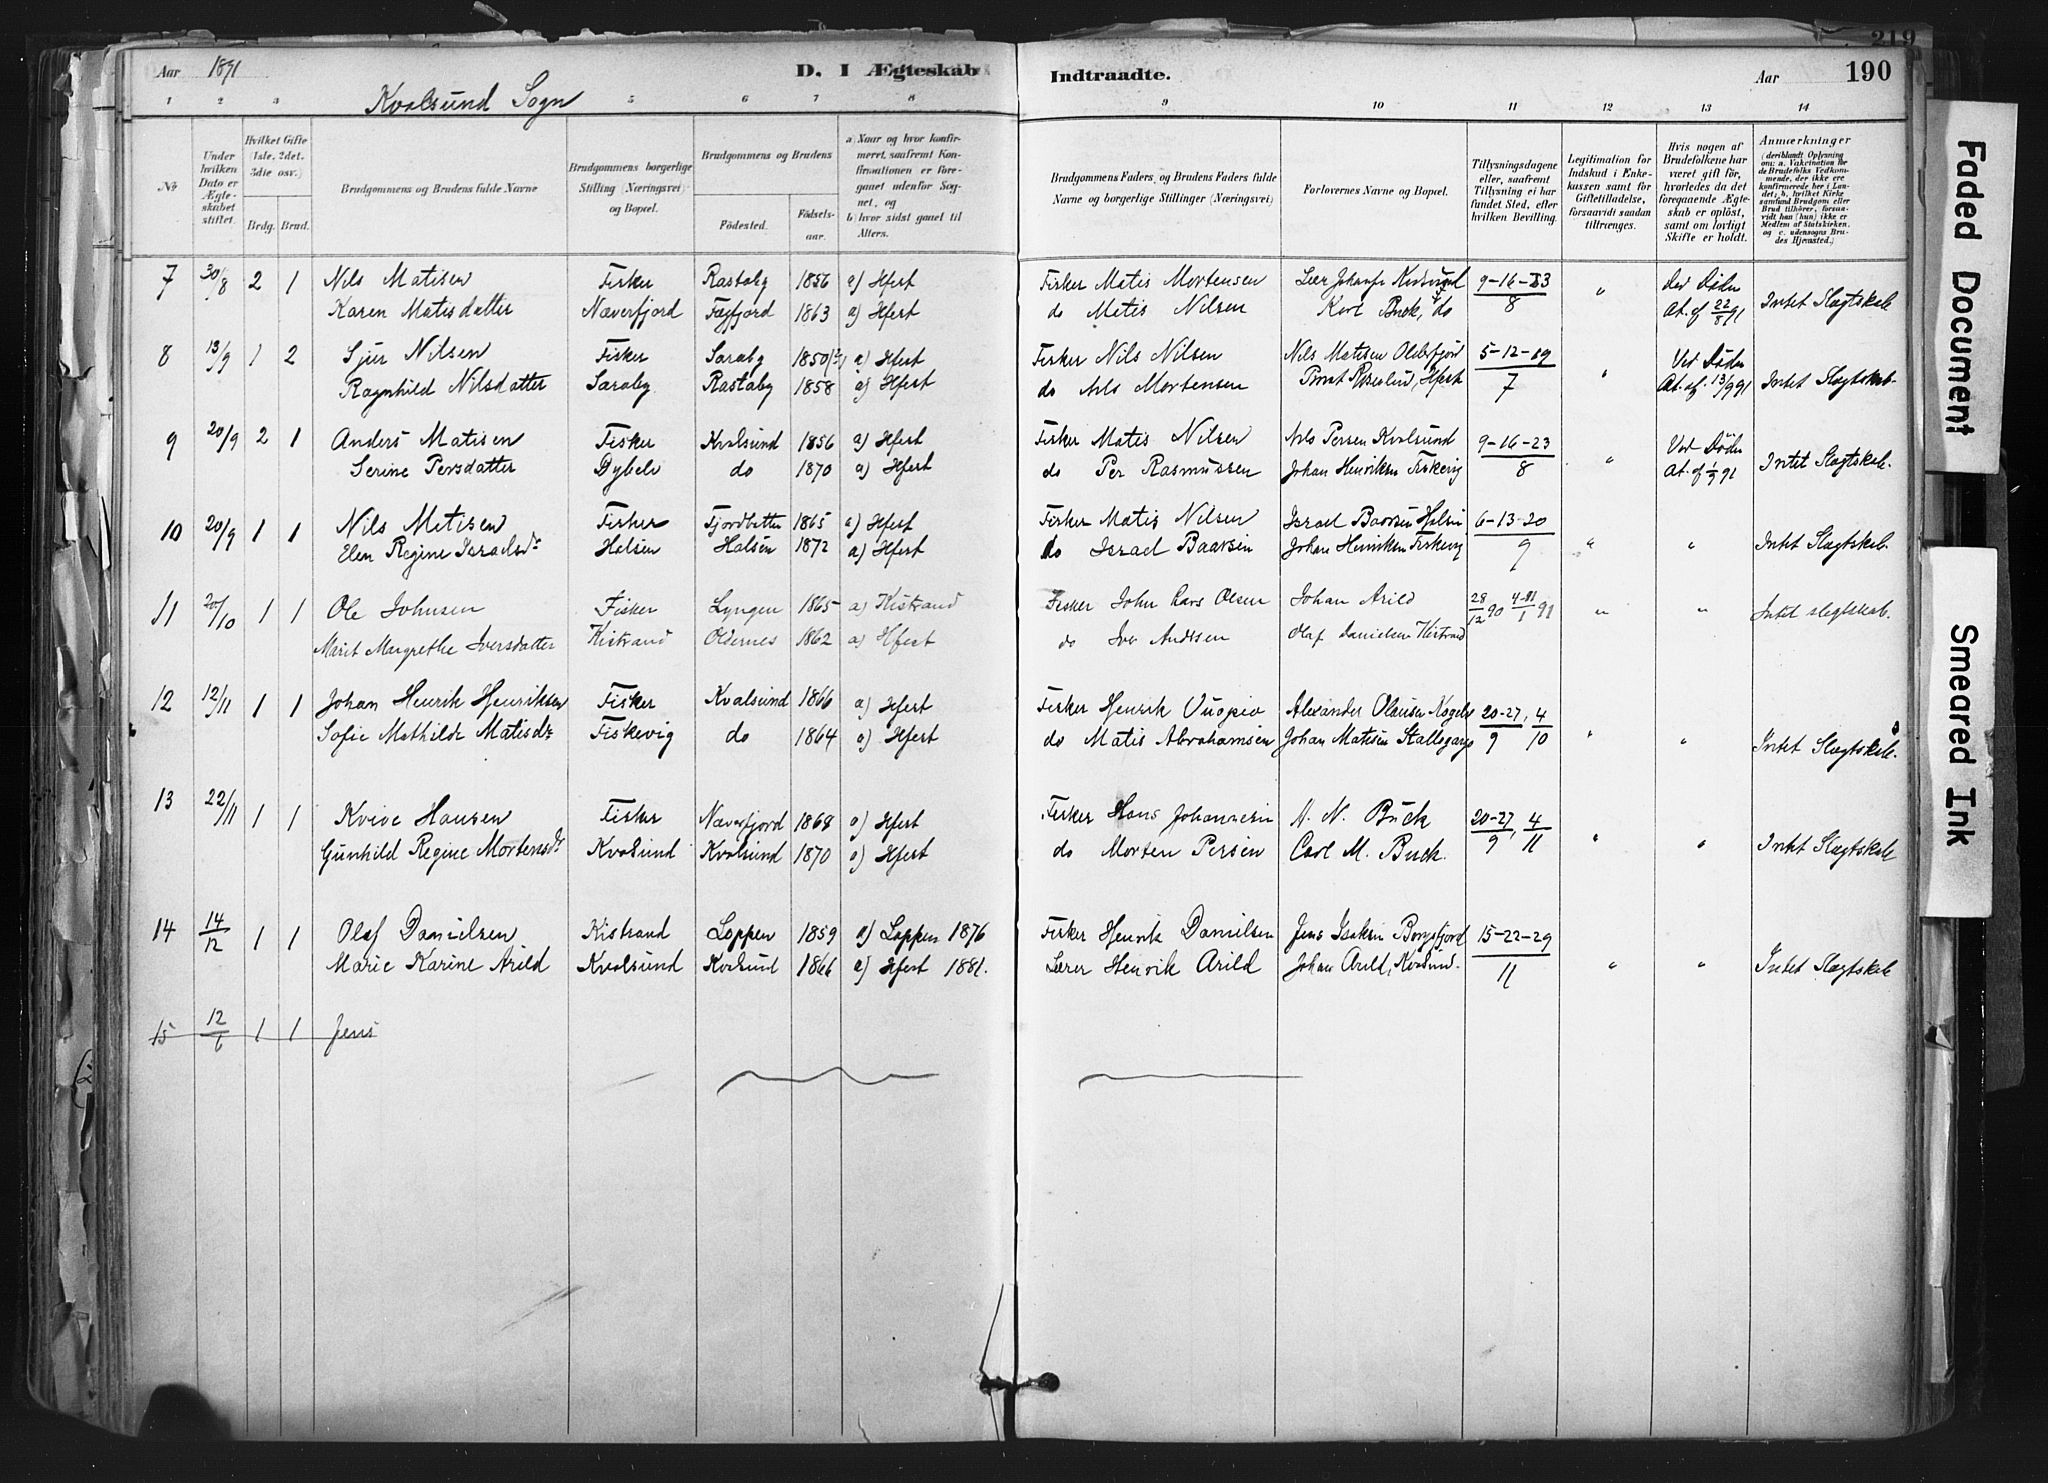 219
Aar 1891 D. I Ægteskab Indtraadte. Aar 190
1 2 3 5 6 7 8 9 10 11 12 13 14
Kvalsund Sogn
No
Under hvilken Dato er Ægteskabet stiftet.
Hvilket Gifte (1ste, 2det, 3die osv.)
Brdg. Brud.
Brudgommens og Brudens fulde Navne
Brudgommens borgerlige Stilling (Næringsvei) og Bopæl.
Brudgommens og Brudens
Födested. Födselsaar.
a) Naar og hvor konfirmeret, saafremt Konfirmationen er foregaaet udenfor Sognet, og
b) hvor sidst gaaet til Alters.
Brudgommens Faders og Brudens Faders fulde Navne og borgerlige Stillinger (Næringsvei)
Forlovernes Navne og Bopæl.
Tillysningsdagene eller, saafremt Tillysning ei har fundet Sted, efter hvilken Bevilling.
Legitimation for Indskud i Enkekassen samt for Giftetilladelse, forsaavidt saadan tiltrænges.
Hvis nogen af Brudefolkene har været gift för, hvorledes da det foregaaende Ægteskab er oplöst, samt om lovligt Skifte er holdt.
Anmærkninger
(deriblandt Oplysning om: a. Vakcination for de Brudefolks Vedkommende, der ikke ere konfirmerede her i Landet; b. hvilket Kirkesamfund Brudgom eller Brud tilhörer, forsaavidt han (hun) ikke er Medlem af Statskirken, og c. udensogns Brudes Hjemsted.)
7 30/8 2 1 Nils Matisen Fisker Rastaby 1856 a) Hfest Fisker Matis Mortensen 9-16-23
Karen Matisdatter Næverfjord Fægfjord 1863 a) Hfest do Matis Nilsen Karl Buck, do 8 " At. af 22/8 91 Intet Slægtskab
8 13/9 1 2 Sjur Nilsen Fisker Saraby 1850 a) Hfest Fisker Nils Nilsen Nils Matisen 5-12-19 Ved Döden
Ragnhild Nilsdatter Saraby Rastaby 1858 a) Hfest do Nils Mortensen 7 " At. af 13/9 91 Intet Slægtskab.
9 20/9 2 1 Anders Matisen Fisker Kvalsund 1856 a) Hfest Fisker Matis Nilsen Nils Persen Kvalsund 9-16-23 Ved Döden
Serine Persdatter Dybelv do 1870 a) Hfest do Per Rasmussen Johan Henriksen Fiskevig 8 " At. af 1/9 91 Intet Slægtskab.
10 20/9 1 1 Nils Matisen Fisker Fjordbotten 1865 a) Hfest Fisker Matis Nilsen Israel Baarsen Halsen 6-13-20
Elen Regine Israelsdr Halsen Halsen 1872 a) Hfest do Israel Baarsen Johan Henriksen Fiskevig 9 " " Intet Slægtskab.
11 20/10 1 1 Ole Johnsen Fisker Lyngen 1865 a) Kistrand Fisker John Lars Olsen Johan Arild 28/12 90 4-11/1 91 " " Intet slegtskab.
Marit Margrethe Iversdatter Kistrand Oldernes 1862 a) Hfest do Iver Andersen Olaf Danielsen Kistrand
12 12/11 1 1 Johan Henrik Henriksen Fisker Kvalsund 1866 a) Hfest Fisker Henrik Vuopio Alexander Olausen 20-27, 4
Sofie Mathilde Matisdr Fiskevig do 1864 a) Hfest do Matis Abrahamsen Johan Matisen Stallogargo 9 10 " " Intet Slægtskab.
13 22/11 1 1 Kvive Hansen Fisker Næverfjord 1868 a) Hfest Fisker Hans Johannesen A. N. Buck 20-27, 4
Gunhild Regine Mortensdr Kvalsund Kvalsund 1870 a) Hfest do Morten Persen Carl M. Buck. 9 11 " " Intet Slægtskab
14 14/12 1 1 Olaf Danielsen Kistrand Loppen 1859 a) Loppen 1876 Fisker Henrik Danielsen Jens Isaksen 15-22-29
Marie Karine Arild Kvalsund Kvalsund 1866 a) Hfest 1881. Lærer Henrik Arild Johan Arild, Kvalsund. 11 " " Intet Slægtskab
15 12/6 1 1 Jens
Faded Document
Smeared Ink